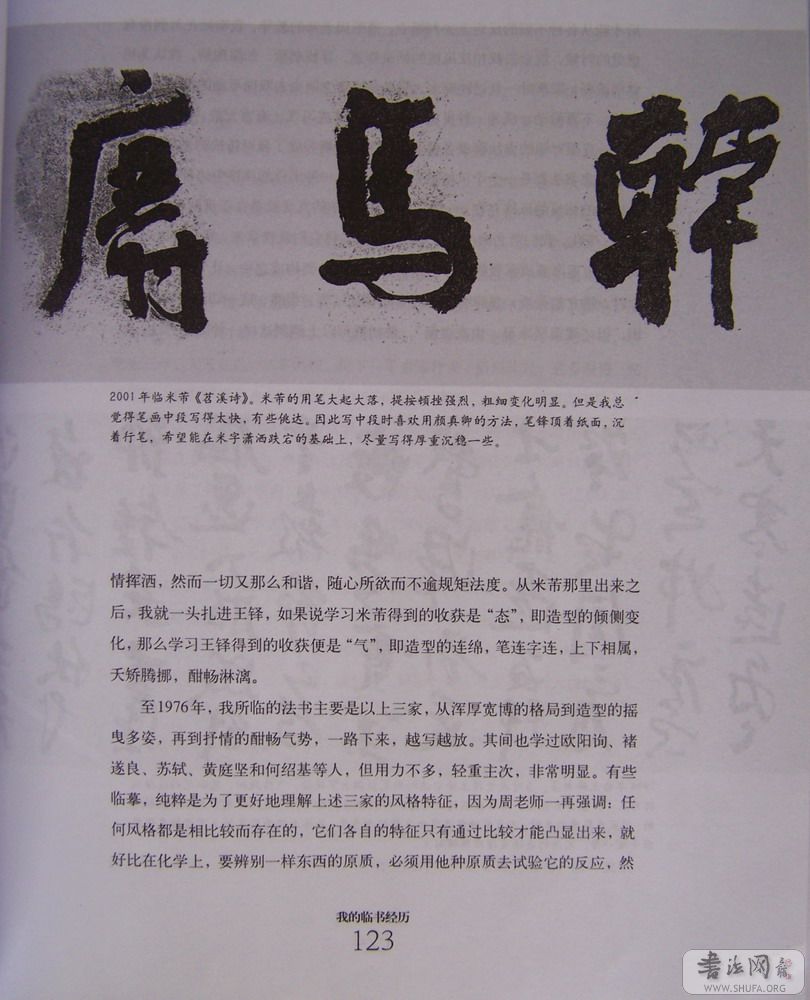 馬
2001年临米芾《苕溪诗》。米芾的用笔大起大落，提按顿挫强烈，粗细变化明显。但是我总
觉得笔画中段写得太快，有些佻达。因此写中段时喜欢用颜真卿的方法，笔锋顶着纸面，沉
着行笔，希望能在米字潇洒跌宕的基础上，尽量写得厚重沉稳一些。
情挥洒，然而一切又那么和谐，随心所欲而不逾规矩法度。从米芾那里出来之
后，我就一头扎进王铎，如果说学习米芾得到的收获是“态”，即造型的倾侧变
化，那么学习王铎得到的收获便是“气”，即造型的连绵，笔连字连，上下相属，
夭矫腾挪，酣畅淋漓。
至1976年，我所临的法书主要是以上三家，从浑厚宽博的格局到造型的摇
曳多姿，再到抒情的酣畅气势，一路下来，越写越放。其间也学过欧阳询、褚
遂良、苏轼、黄庭坚和何绍基等人，但用力不多，轻重主次，非常明显。有些
临摹，纯粹是为了更好地理解上述三家的风格特征，因为周老师一再强调：任
何风格都是相比较而存在的，它们各自的特征只有通过比较才能凸显出来，就
好比在化学上，要辨别一样东西的原质，必须用他种原质去试验它的反应，然
我的临书经历
123
书法网
WWW.SHUFA.ORG